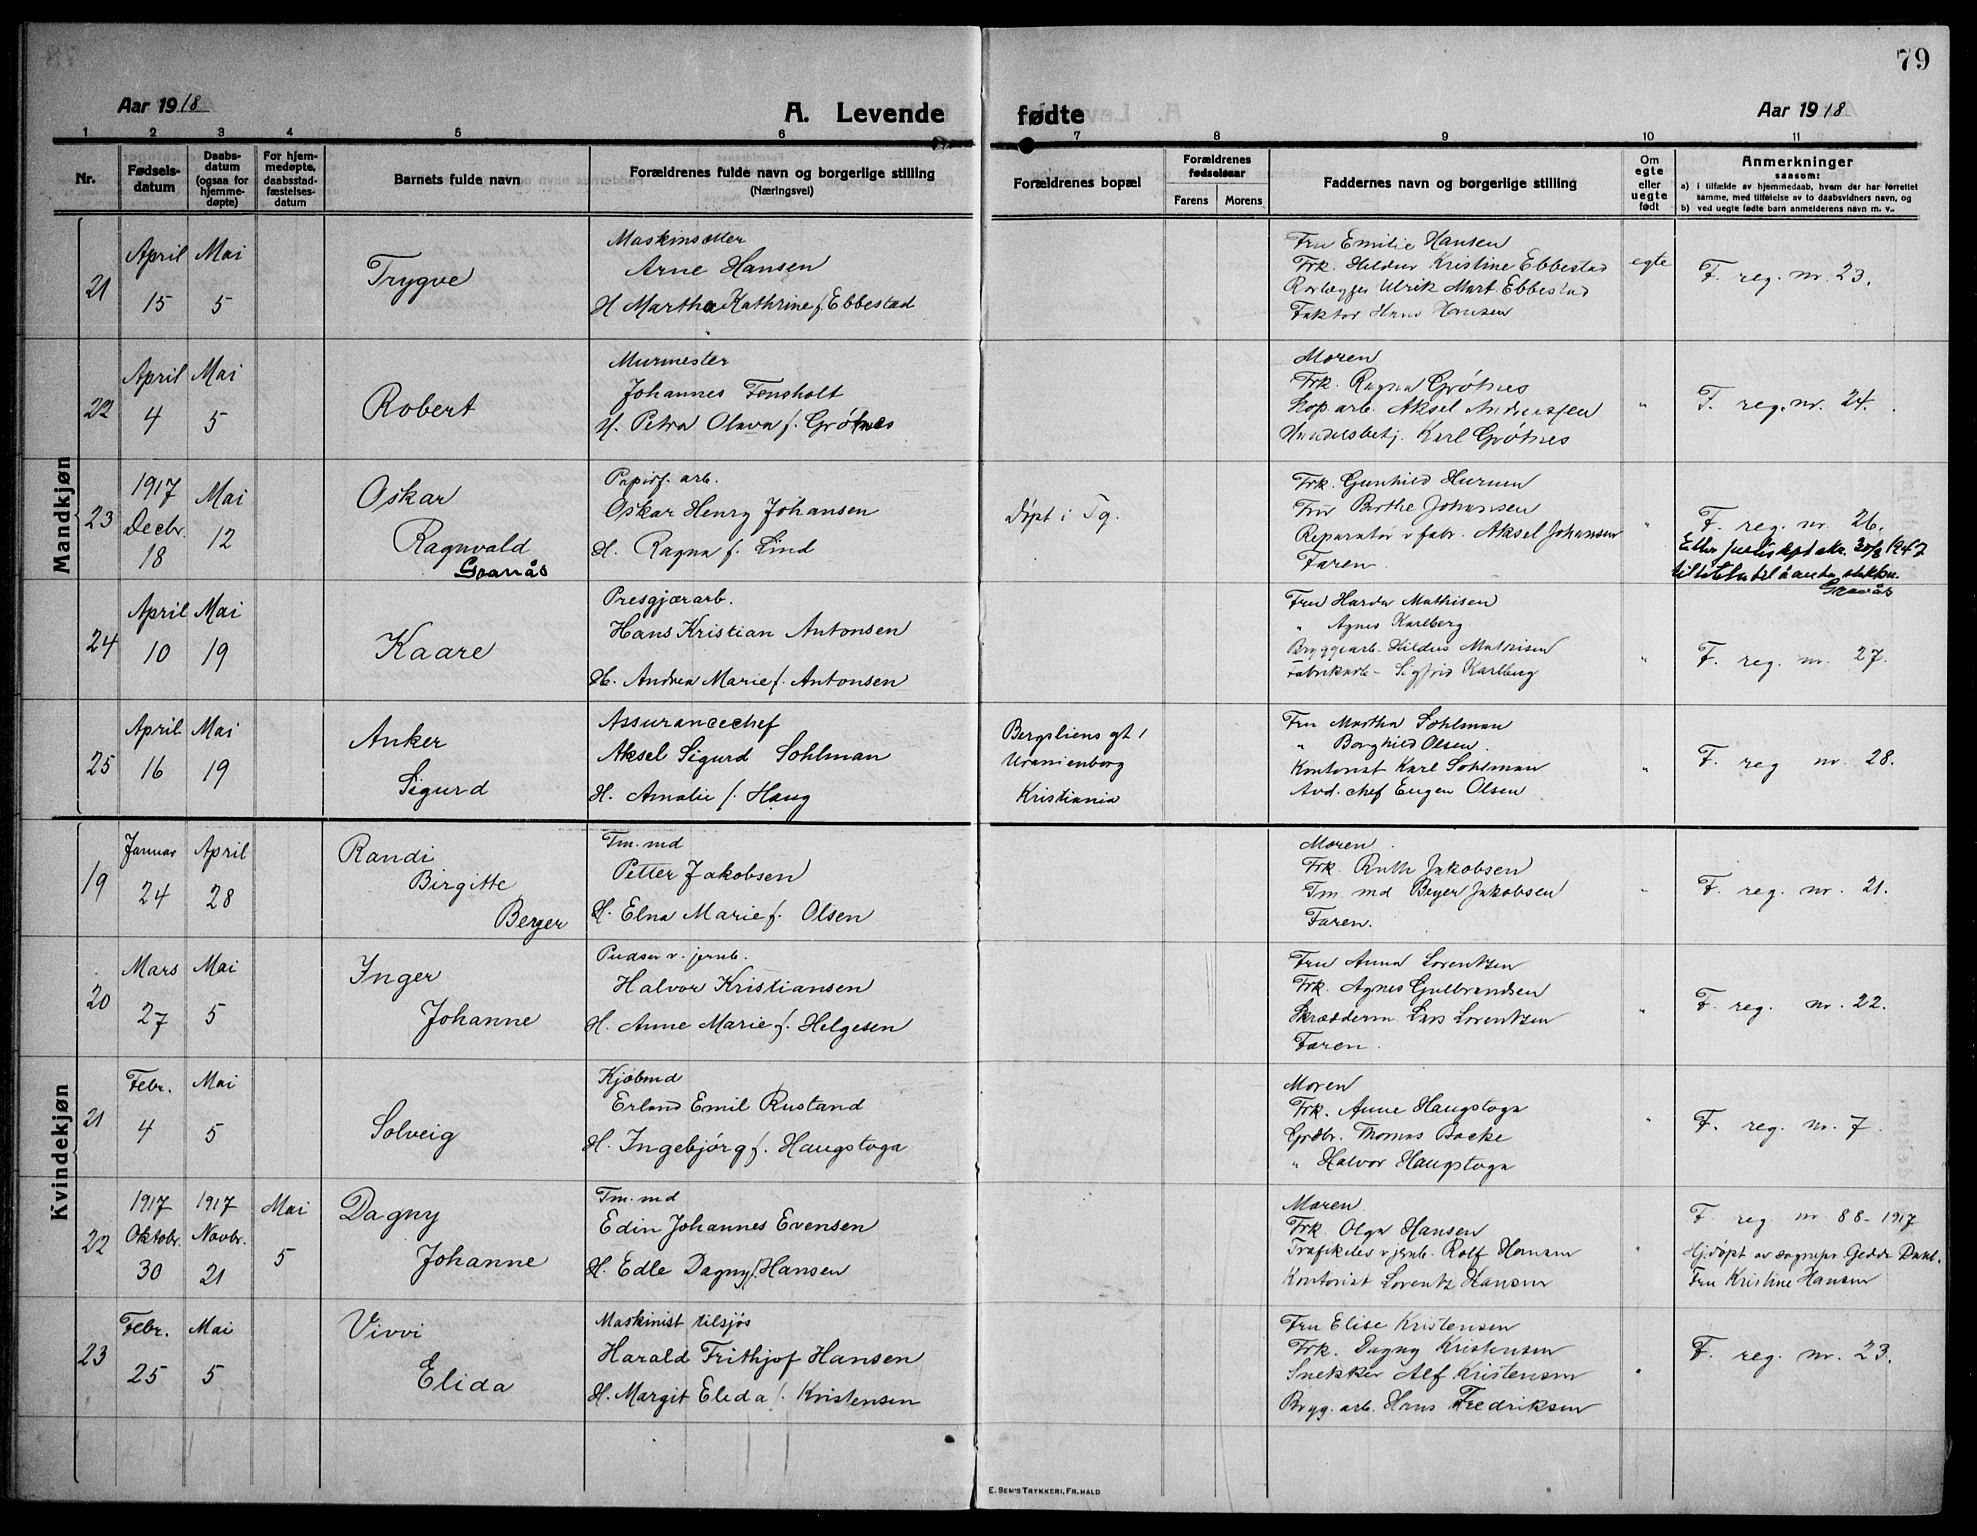 79
Aar 1918
A. Levende fødte
Aar 1918
1 2 3 4 5 6 7 8 9 10 11
Nr.
Fødsels-
datum
Daabs-
datum
(ogsaa for
hjemme-
døpte)
For hjem-
medøpte,
daabsstad-
fæstelses-
datum
Barnets fulde navn
Forældrenes fulde navn og borgerlige stilling
(Næringsvei)
Forældrenes bopæl
Forældrenes
fødselsaar
Farens Morens
Faddernes navn og borgerlige stilling
Om
egte
eller
uegte
født
Anmerkninger
saasom:
a) i tilfælde av hjemmedaab, hvem der har forrettet
samme, med tilføielse av to daabsvidners navn, og
b) ved uegte fødte barn anmelderens navn m. v..
Mandkjøn
21
April
15
Mai
5
Trygve
Maskinsætter
Arne Hansen
H. Martha Kathrine f. Ebbestad
Fru Emilie Hansen
Frk. Hildur Kristine Ebbestad
Rørlegger Ulrik Mart. Ebbestad
Faktor Hans Hansen
egte
F. reg. nr. 23.
22
April
4
Mai
5
Robert
Murmester
Johannes Fensholt
H. Petra Olava f. Grötnes
Moren
Frk. Ragna Grötnes
Kop arb. Aksel Anderssen
Handelsbetj. Karl Grötnes
"
F. reg. nr. 24.
23
1917
Decbr.
18
Mai
12
Oskar
Ragnvald
Granås
Papirf. arb.
Oskar Henry Johansen
H. Ragna f. Lind
Døpt i Tg.
Frk. Gunhild Hurum
Fru Berthe Johansen
Reparatør v fabr. Aksel Johansen
Faren
"
F. reg. nr. 26.
Granås
24
April
10
Mai
19
Kaare
Presgjærarb.
Hans Kristian Antonsen
H. Andrea Marie f. Antonsen
Fru Harda Mathisen
" Agnes Karlberg
Bryggearb. Hildus Mathisen
Fabrikarb. Sigfrid Karlberg
"
F. reg. nr. 27.
25
April
16
Mai
19
Anker
Sigurd
Assurancechef
Aksel Sigurd Sohlman
H. Amalie f. Haug
Bergsliens gt 1
Uranienborg
Kristiania
Fru Martha Sohlman
" Borghild Olsen
Kontorist Karl Sohlman
Avd. chef Eugen Olsen
"
F. reg nr. 28.
Kvindekjøn
19
Januar
24
April
28
Randi
Birgitte
Berger
Tm. md
Petter Jakobsen
H. Elna Marie f. Olsen
Moren
Frk. Ruth Jakobsen
Tm. md Beyer Jakobsen
Faren.
"
F. reg. nr. 21.
20
Mars
27
Mai
5
Inger
Johanne
Pudser v. jernb.
Halvor Kristiansen
H. Anne Marie f. Helgesen
Fru Anna Lorentzen
Frk. Agnes Gulbrandsen
Skrædderm Lars Lorentzen
Faren.
"
F. reg. nr. 22.
21
Febr.
4
Mai
5
Solveig
Kjöbmd
Erland Emil Rustand
H. Ingebjörg f. Haugstoga
Moren
Frk. Anne Haugstoga
Grdbr. Thomas Bakke
" Halvor Haugstoga
"
F. reg. nr. 7.
22
1917
Oktobr.
30
1917
Novbr.
21
Mai
5
Dagny
Johanne
Tm. md
Edin Johannes Evensen
H. Edle Dagny f. Hansen
Moren
Frk. Olga Hansen
Trafikelev v jernb. Rolf Hansen
Kontorist Lorentz Hansen
"
F. reg. nr 88-1917
Hj.døpt av sognepr. Gedde Dahl.
Fru Kristine Hansen
23
Febr.
25
Mai
5
Vivvi
Elida
Maskinist tilsjøs
Harald Frithjof Hansen
H. Margit Elida f. Kristensen
Fru Elise Kristensen
Frk. Dagny Kristensen
Snekker Alf Kristensen
Brygg. arb. Hans Fredriksen
"
F. reg. nr. 23.
E. SEM'S TRYKKERI, FR.HALD